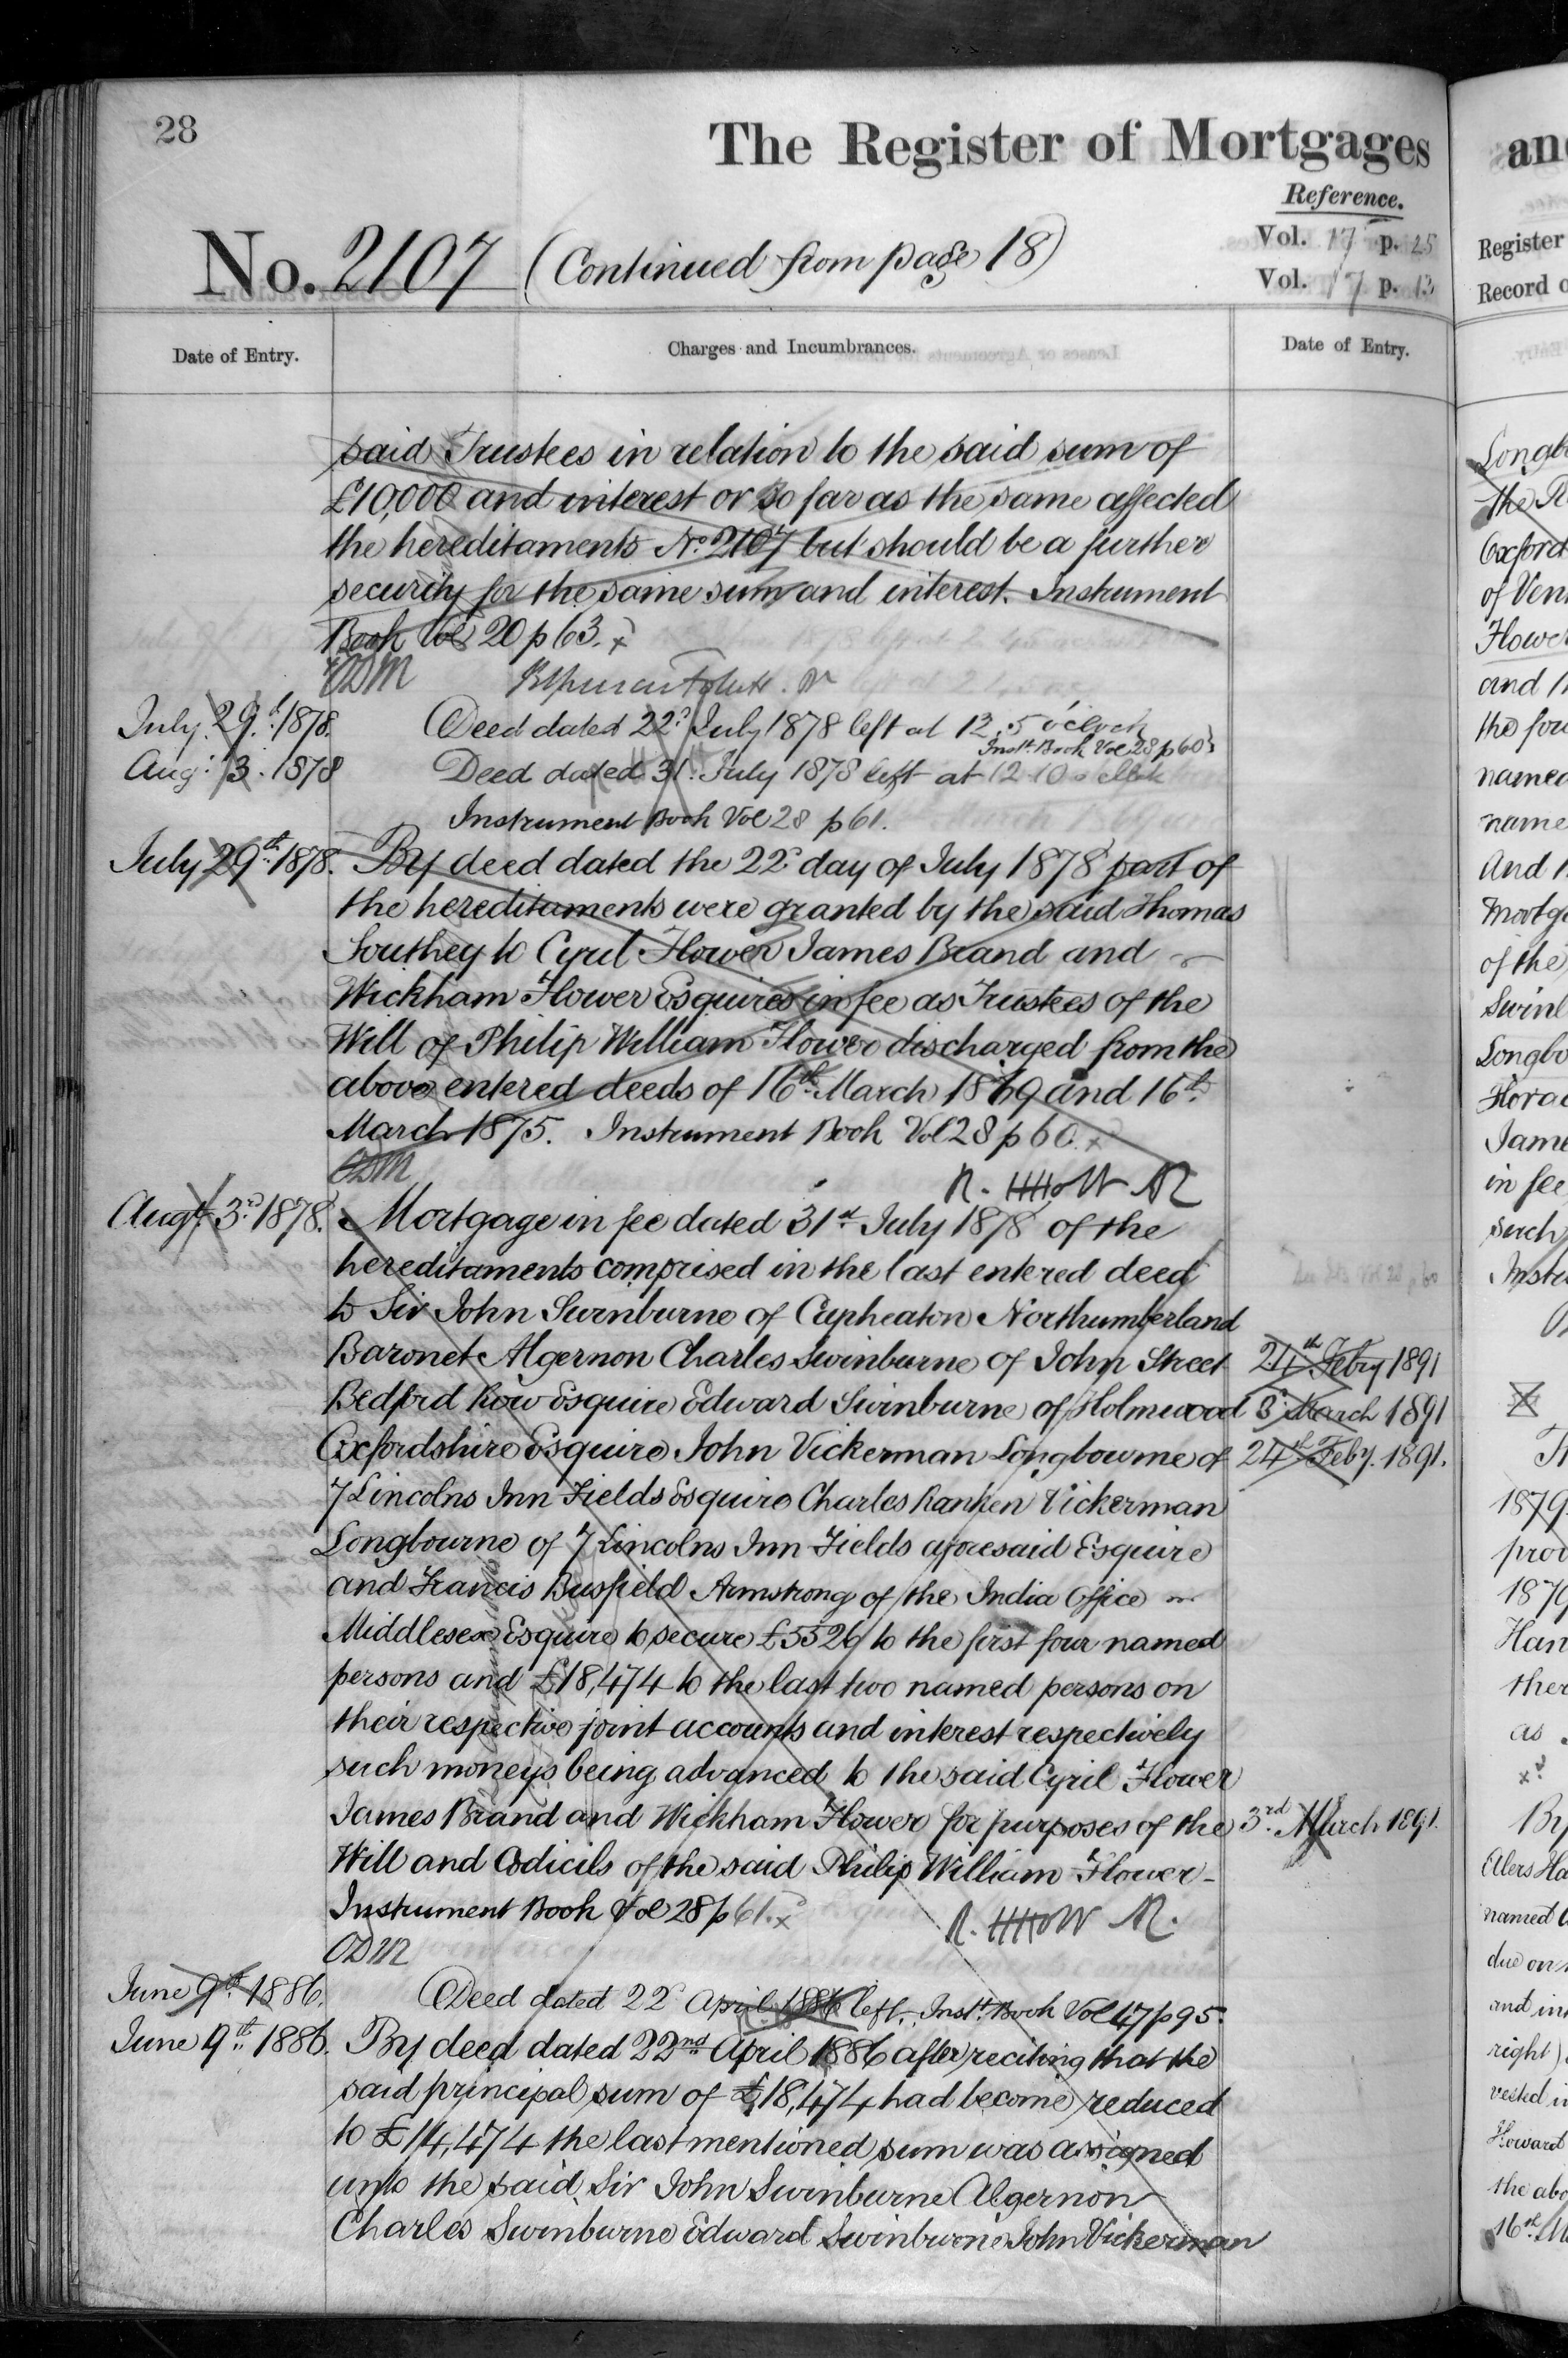 28
The Register of Mortgages
Reference.
No. 2107 (Continued from page 18)
Vol. 17 p. 25
Vol. 17 p. 13
Date of Entry.
Charges and Incumbrances.
Date of Entry.
said Trustees in relation to the said sum of
£10,000 and interest or so far as the same affected
the hereditaments No. 2107 but should be a further
security for the same sum and interest. Instrument
Book Vol 20 p 63. x
ODM
July 29th 1878. Deed dated 22d July 1878 left at 12.5 o'clock
Inst. Book Vol 28 p 60
Aug: 3. 1878 Deed dated 31st July 1878 left at 12.10 o'clock
Instrument Book Vol 28 p 61.
July 29th 1878. By deed dated the 22d day of July 1878 part of
the hereditaments were granted by the said Thomas
Southey to Cyril Flower James Brand and
Wickham Flower Esquires in fee as Trustees of the
Will of Philip William Flower discharged from the
above entered deeds of 16th March 1869 and 16th
March 1875. Instrument Book Vol 28 p 60. x
ODM
Augt. 3rd 1878. Mortgage in fee dated 31st July 1878 of the
hereditaments comprised in the last entered deed
to Sir John Swinburne of Capheaton Northumberland
Baronet Algernon Charles Swinburne of John Street
24th Feby 1891
Bedford Row Esquire Edward Swinburne of Holmwood
3d March 1891
Oxfordshire Esquire John Vickerman Longbourne of
24th Feby. 1891.
7 Lincolns Inn Fields Esquire Charles Ranken Vickerman
Longbourne of 7 Lincolns Inn Fields aforesaid Esquire
and Francis Busfield Armstrong of the India Office
Middlesex Esquire to secure £5526 to the first four named
persons and £18,474 to the last two named persons on
their respective joint accounts and interest respectively
such moneys being advanced to the said Cyril Flower
James Brand and Wickham Flower for purposes of the
3rd March 1891.
Will and Codicils of the said Philip William Flower
Instrument Book Vol 28 p 61. x
ODM
June 9th 1886. Deed dated 22d April 1886 left. Inst. Book Vol 47 p 95.
June 9th 1886. By deed dated 22nd April 1886 after reciting that the
said principal sum of £18,474 had become reduced
to £14,474 the last mentioned sum was assigned
unto the said Sir John Swinburne Algernon
Charles Swinburne Edward Swinburne John Vickerman
Register
Record
Oxford
and
named
And
of the
in fee
such
1879
as
By
named
due on
right)
vested
Howard